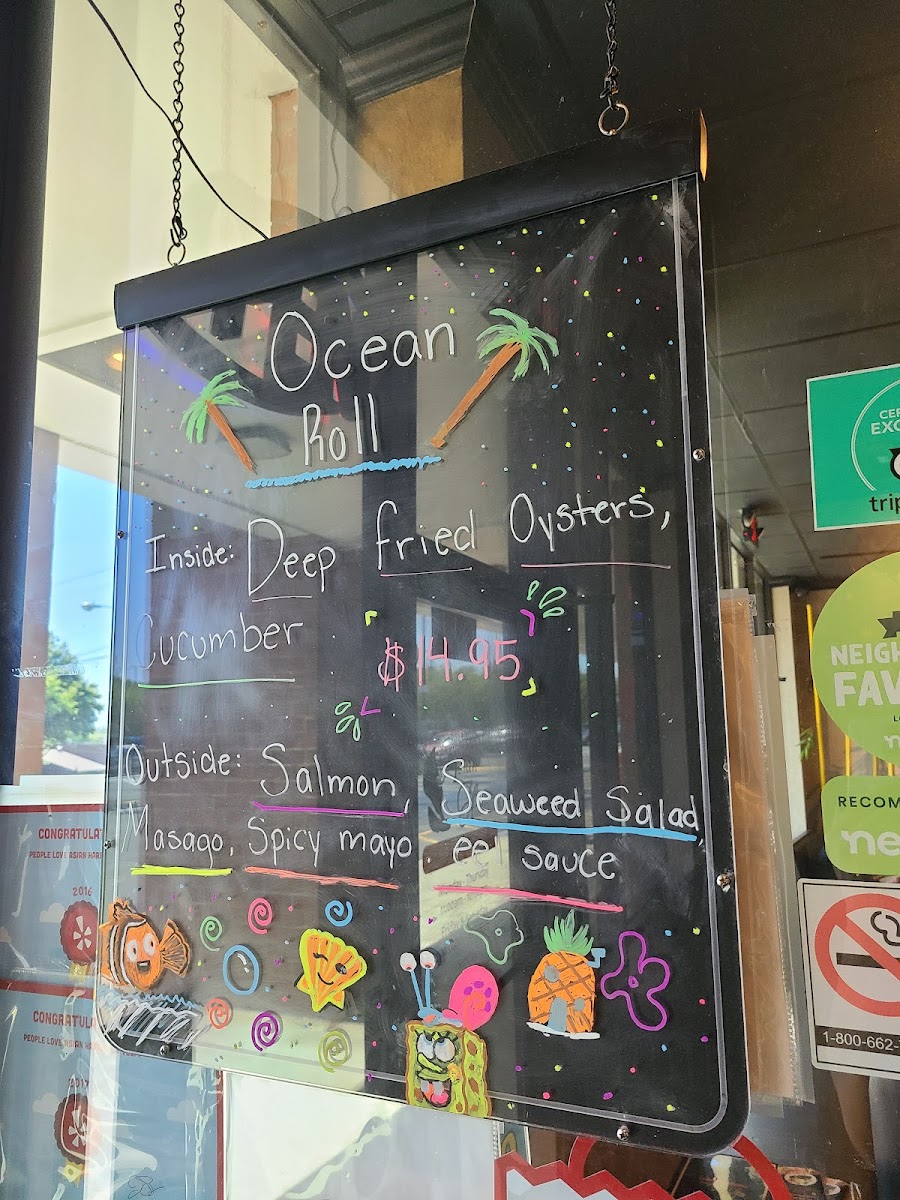 Ocean
Roll
Inside: Deep fried Oysters,
Cucumber
$14.95
Outside: Salmon, Seaweed Salad,
Masago, Spicy mayo, eel sauce
trip
NEIGH
FAV
RECOM
ne
1-800-662-
CONGRATULAT
PEOPLE LOVE ASIAN HAR
2016
CONGRATULA
PEOPLE LOVE ASIAN HAR
2017